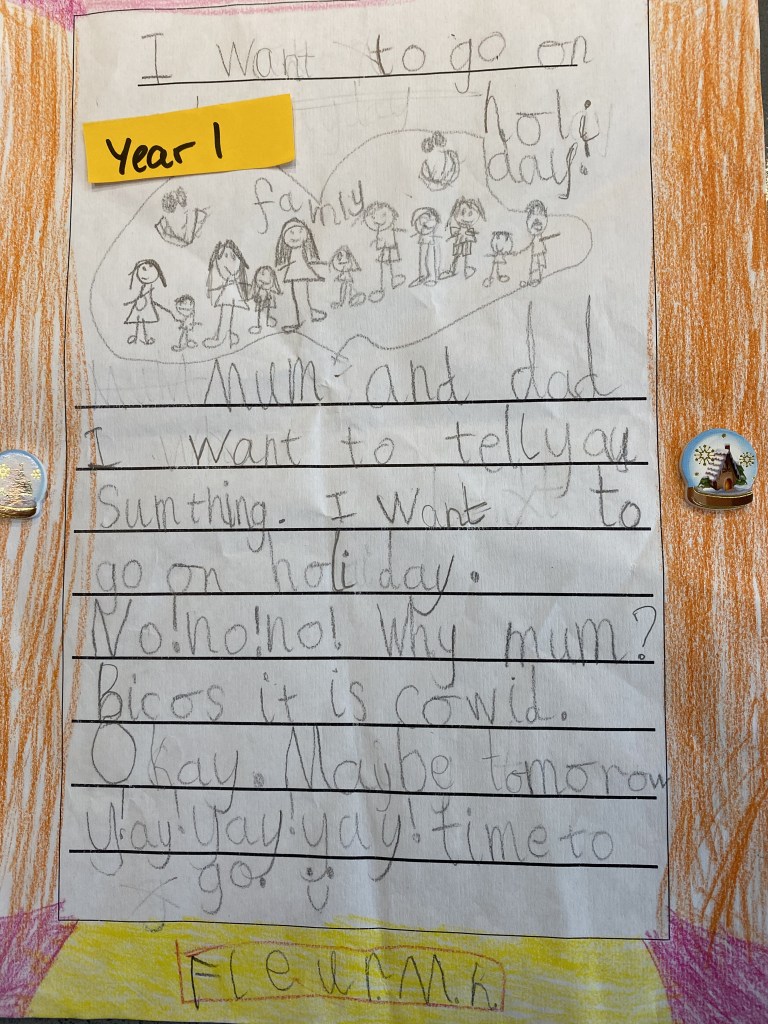 I want to go on
holi
day!
Year 1
famly
Mum and dad
I want to tell you
Sumthing. I want to
go on holiday.
No!no!no! Why mum?
Bicos it is cowid.
Okay. Maybe tomorow
y!ay!yay!yay! time to
go.
Fleur.M.h